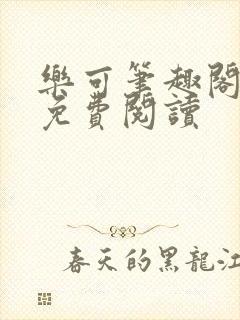 樂可筆趣閣
免費閱讀
春天的黑龍江